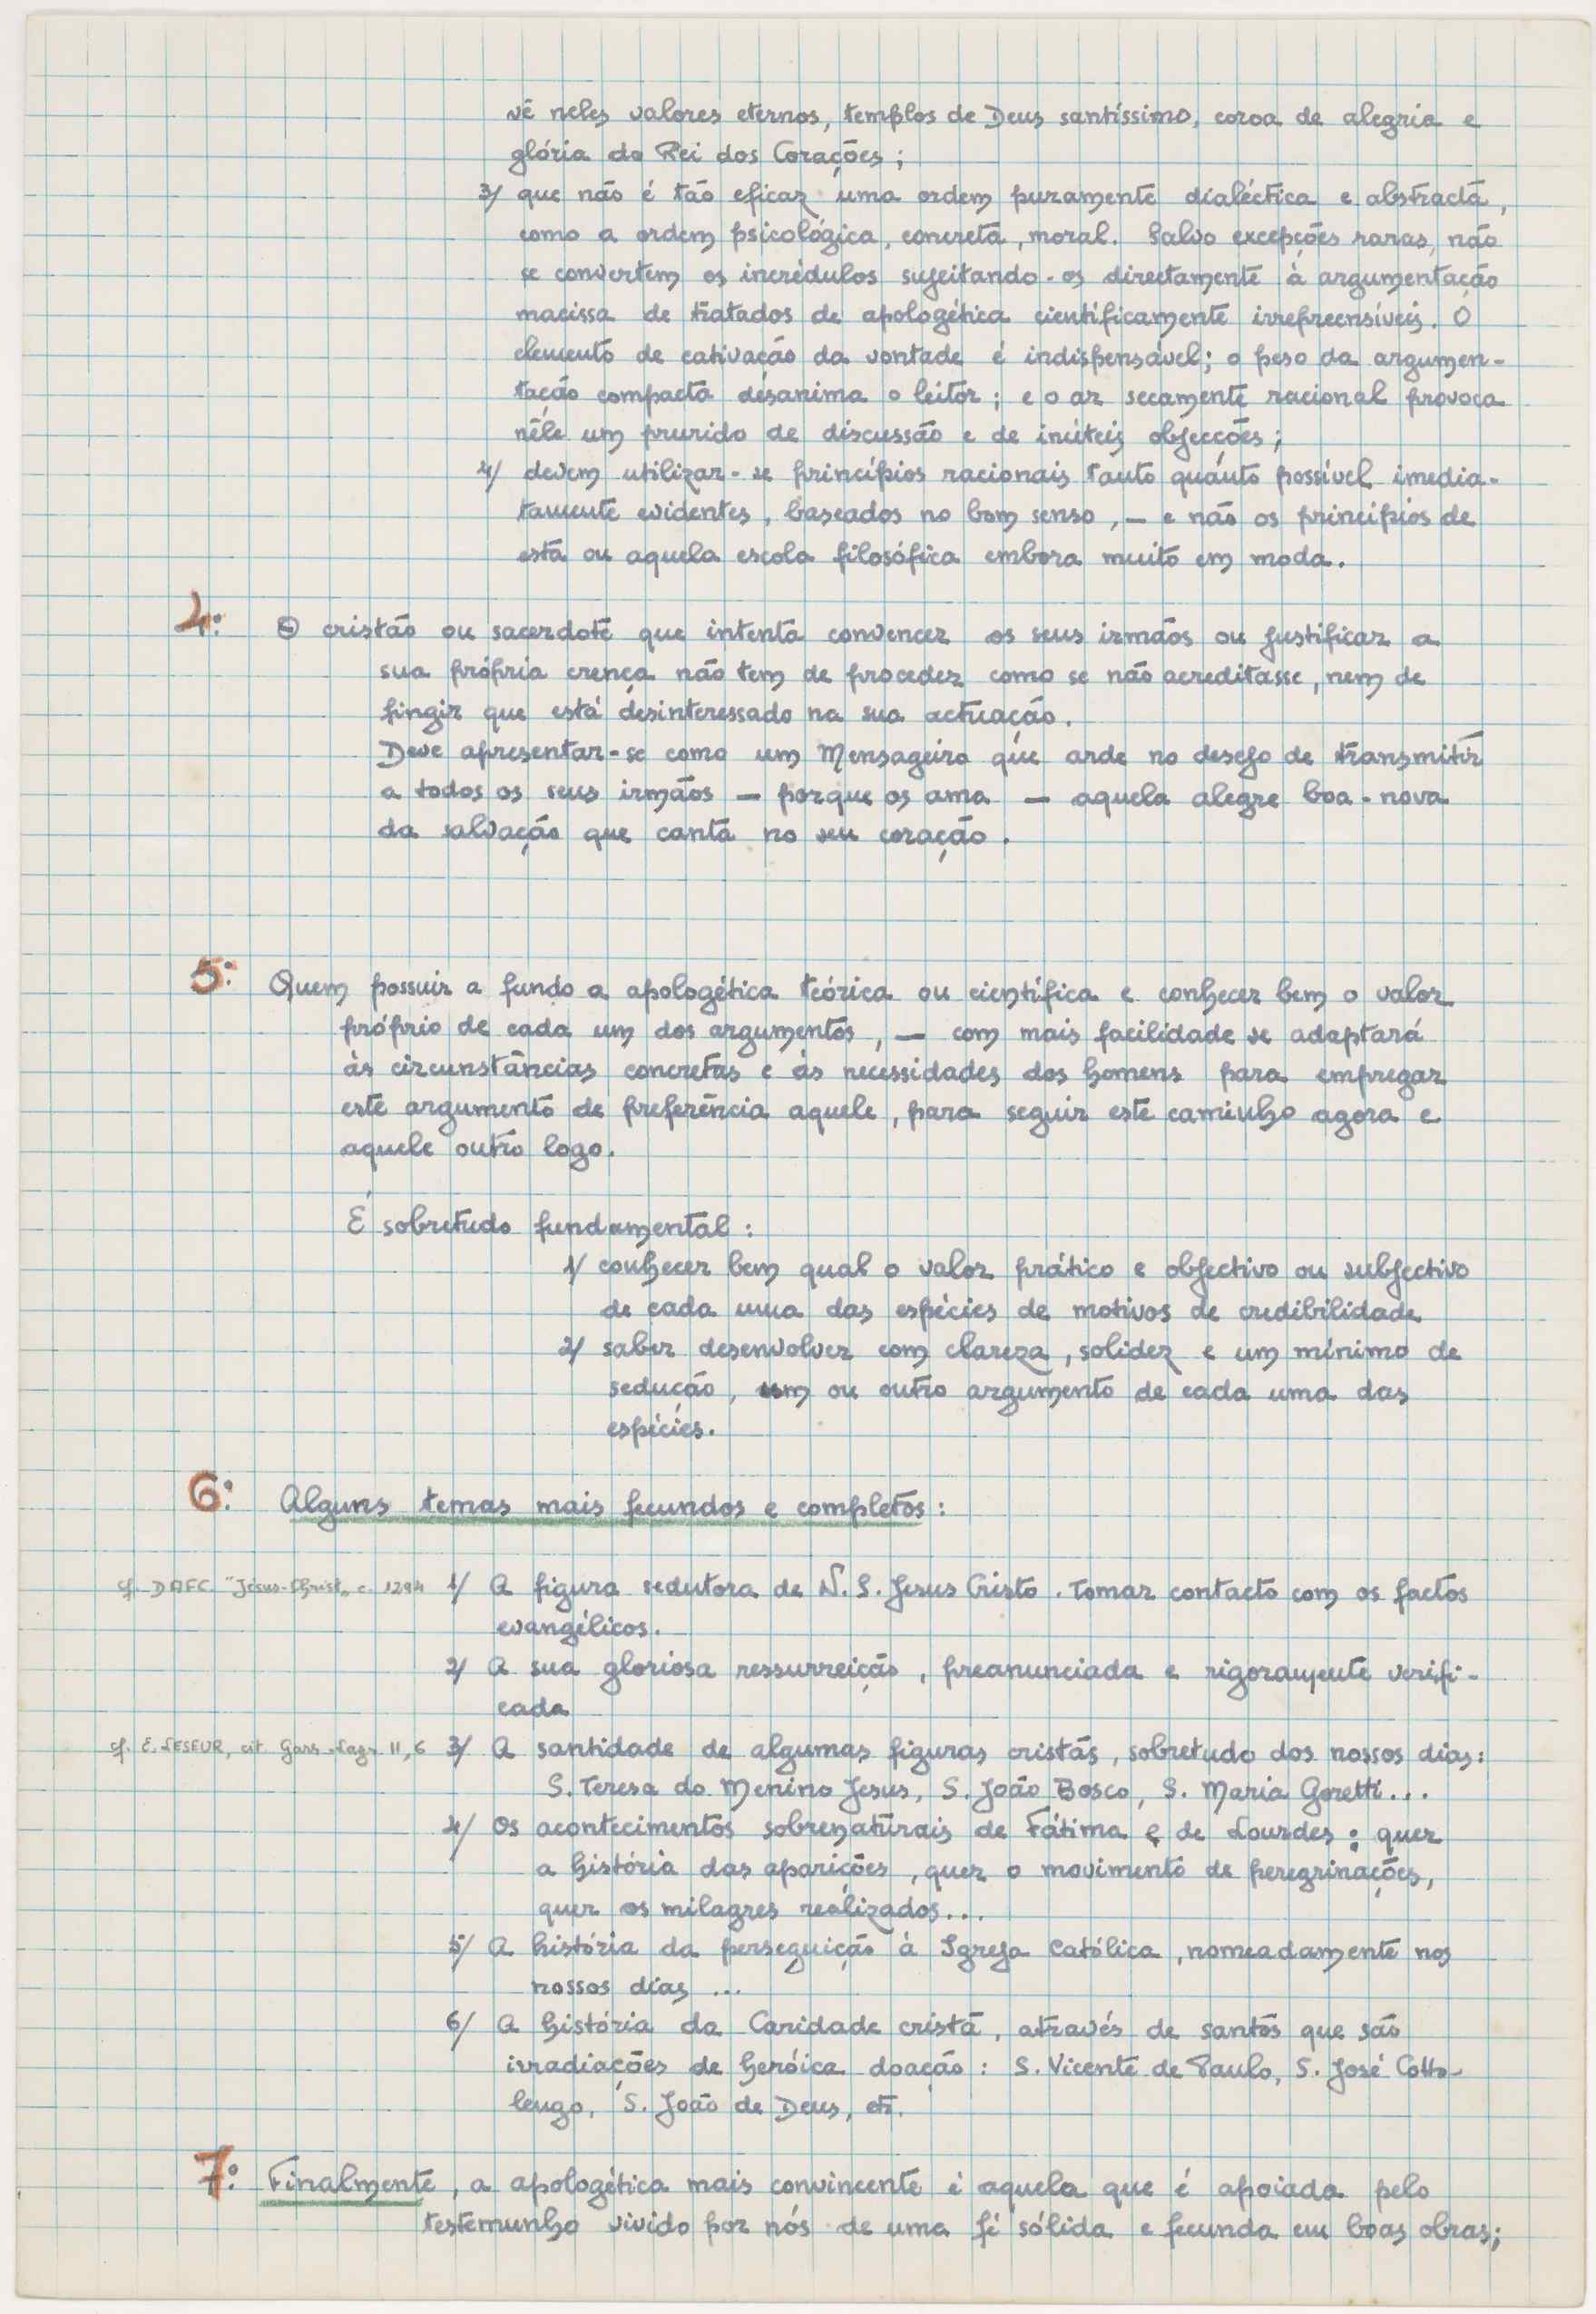 vê neles valores eternos, templos de Deus santíssimo, coroa de alegria e
glória do Rei dos Corações;
3/ que não é tão eficaz uma ordem puramente dialéctica e abstracta,
como a ordem psicológica, concreta, moral. Salvo excepções raras, não
se convertem os incrédulos sujeitando-os directamente à argumentação
macissa de tratados de apologética cientificamente irrepreensíveis. O
elemento de cativação da vontade é indispensável; o peso da argumen-
tação compacta desanima o leitor; e o ar secamente racional provoca
nêle um prurido de discussão e de inúteis objecções;
4/ devem utilizar-se princípios racionais tanto quanto possível imedia-
tamente evidentes, baseados no bom senso, — e não os princípios de
esta ou aquela escola filosófica embora muito em moda.
4: O cristão ou sacerdote que intenta convencer os seus irmãos ou justificar a
sua própria crença não tem de proceder como se não acreditasse, nem de
fingir que está desinteressado na sua actuação.
Deve apresentar-se como um Mensageiro que arde no desejo de transmitir
a todos os seus irmãos — porque os ama — aquela alegre boa-nova
da salvação que canta no seu coração.
5: Quem possuir a fundo a apologética teórica ou científica e conhecer bem o valor
próprio de cada um dos argumentos, — com mais facilidade se adaptará
às circunstâncias concretas e às necessidades dos homens para empregar
este argumento de preferência aquele, para seguir este caminho agora e
aquele outro logo.
É sobretudo fundamental:
1/ conhecer bem qual o valor prático e objectivo ou subjectivo
de cada uma das espécies de motivos de credibilidade
2/ saber desenvolver com clareza, solidez e um mínimo de
sedução, um ou outro argumento de cada uma das
espécies.
6: Alguns temas mais fecundos e completos:
cf. DAFC. "Jésus-Christ" c. 1294 1/ A figura sedutora de N. S. Jesus Cristo. Tomar contacto com os factos
evangélicos.
2/ A sua gloriosa ressurreição, preanunciada e rigoramente verifi-
cada
cf. E. LESEUR, cit. Garr.-Lagr. II, 6 3/ A santidade de algumas figuras cristãs, sobretudo dos nossos dias:
S. Teresa do Menino Jesus, S. João Bosco, S. Maria Goretti...
4/ Os acontecimentos sobrenaturais de Fátima e de Lourdes: quer
a história das aparições, quer o movimento de peregrinações,
quer os milagres realizados...
5/ A história da perseguição à Igreja Católica, nomeadamente nos
nossos dias ...
6/ A história da Caridade cristã, através de santos que são
irradiações de heróica doação: S. Vicente de Paulo, S. José Cotto-
lengo, S. João de Deus, etc.
7: Finalmente, a apologética mais convincente é aquela que é apoiada pelo
testemunho vivido por nós de uma fé sólida e fecunda em boas obras;